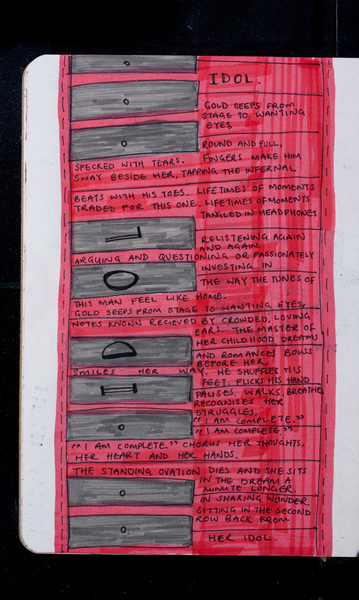 IDOL.
GOLD SEEPS FROM
STAGE TO WANTING
EYES,
ROUND AND FULL,
SPECKED WITH TEARS. FINGERS MAKE HIM
SWAY BESIDE HER, TAPPING THE INFERNAL
BEATS WITH HIS TOES. LIFETIMES OF MOMENTS
TRADED FOR THIS ONE. LIFETIMES OF MOMENTS
TANGLED IN HEADPHONES
L
RELISTENING AGAIN
AND AGAIN.
ARGUING AND QUESTIONING OR PASSIONATELY
INVESTING IN
O
THE WAY THE TUNES OF
THIS MAN FEEL LIKE HOME.
GOLD SEEPS FROM STAGE TO WANTING EYES,
NOTES KNOWN RECIEVED BY CROWDED, LOVING
EARS. THE MASTER OF
HER CHILDHOOD DREAMS
D
AND ROMANCES BOWS
BEFORE HER,
SMILES HER WAY, HE SHUFFLES HIS
FEET, FLICKS HIS HAND
I
PAUSES, WALKS, BREATHE
RECOGNISES HER
STRUGGLES.
"I AM COMPLETE."
"I AM COMPLETE"
"I AM COMPLETE." CHORUS HER THOUGHTS,
HER HEART AND HER HANDS.
THE STANDING OVATION DIES AND SHE SITS
IN THE DREAM A
MINUTE LONGER
IN SHARING WONDER
SITTING IN THE SECOND
ROW BACK FROM
HER IDOL.